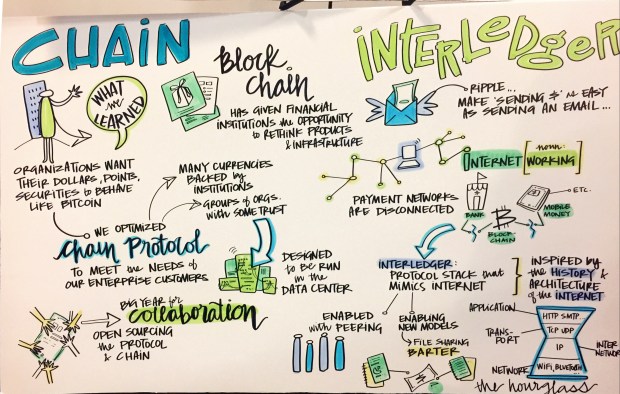 CHAIN
WHAT
we
LEARNED
Block
Chain
HAS GIVEN FINANCIAL
INSTITUTIONS the OPPORTUNITY
to RETHINK PRODUCTS
& INFRASTRUCTURE
ORGANIZATIONS WANT
THEIR DOLLARS, POINTS,
SECURITIES to BEHAVE
LIKE BITCOIN
MANY CURRENCIES
BACKED by
INSTITUTIONS
GROUPS of ORGS.
with SOME TRUST
WE OPTIMIZED
Chain Protocol
TO MEET the NEEDS OF
OUR ENTERPRISE CUSTOMERS
DESIGNED
to BE RUN
in the
DATA CENTER
BIG YEAR for
collaboration
OPEN SOURCING
the PROTOCOL
& CHAIN
INTERLEDGER
RIPPLE...
MAKE 'SENDING $' as EASY
AS SENDING AN EMAIL...
INTERNET
noun:
WORKING
PAYMENT NETWORKS
ARE DISCONNECTED
BANK
B
BLOCK
CHAIN
MOBILE
MONEY
ETC.
INTERLEDGER:
PROTOCOL STACK that
MIMICS INTERNET
INSPIRED by
the HISTORY &
ARCHITECTURE
of the INTERNET
ENABLED
with PEERING
ENABLING
NEW MODELS
FILE SHARING
BARTER
APPLICATION
HTTP SMTP..
TRANS-
PORT
TCP UDP
IP
INTER
NETWORK
NETWORK
WIFI, BLUETOOTH...
the hourglass